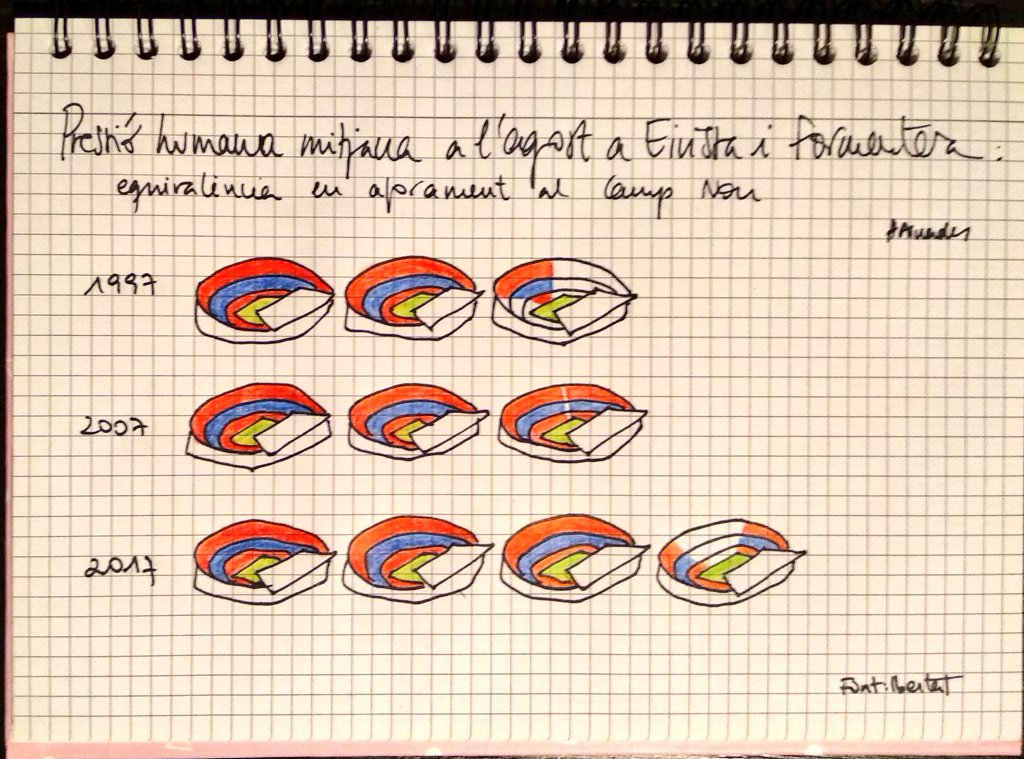 Pressió humana mitjana a l'agost a Eivissa i Formentera:
equivalència en aforament al Camp Nou
1997
2007
2017
Font: Ibestat